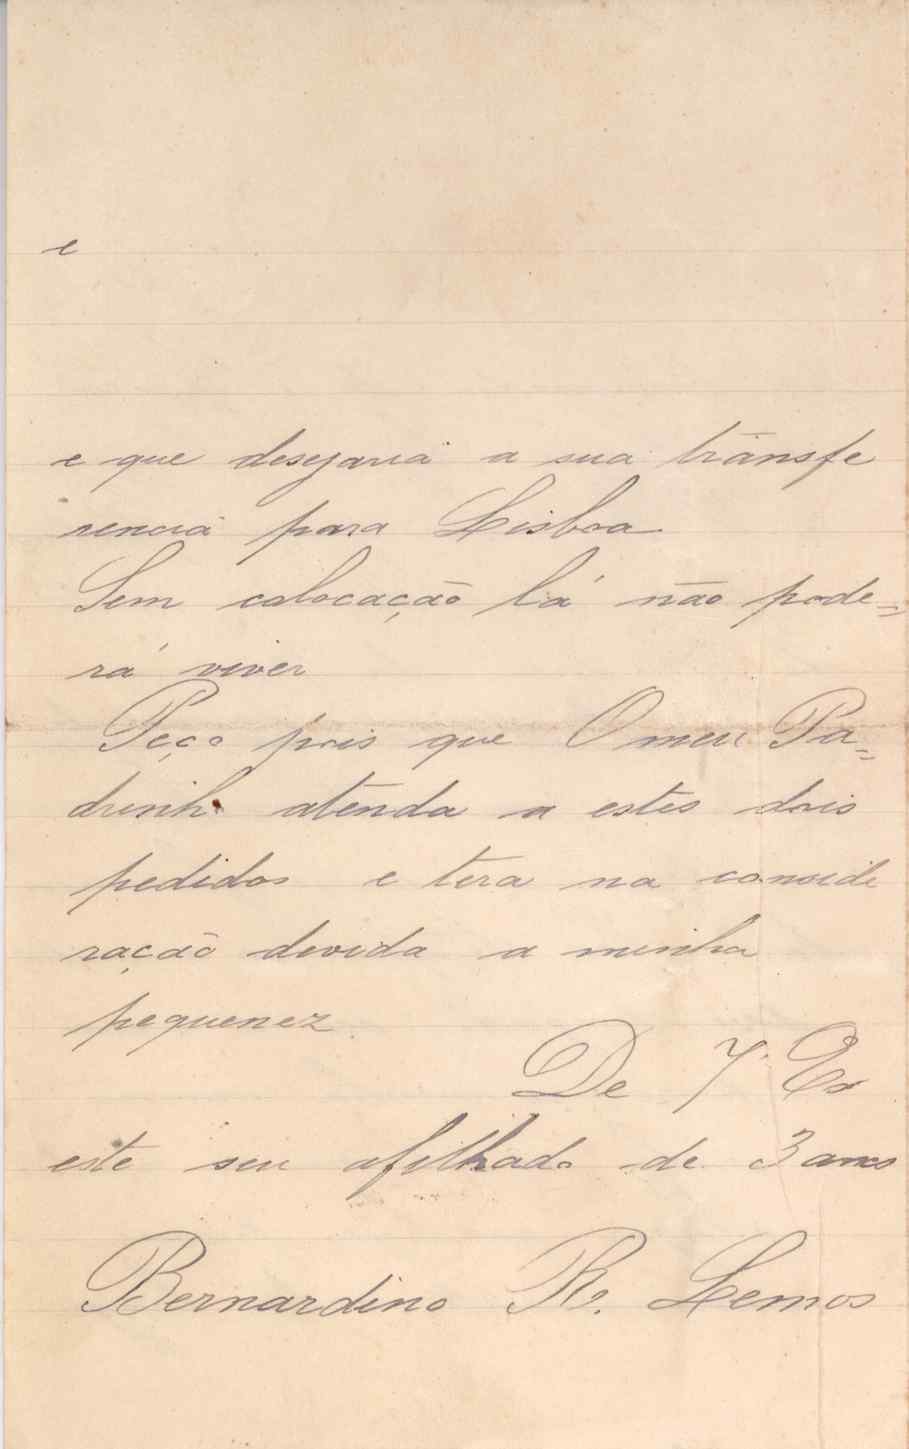 e
e que desejaria a sua transfe
rencia para Lisboa
Sem colocação lá não pode=
rá viver
Peço pois que O meu Pa=
drinho atenda a estes dois
pedidos e tera na conside
ração devida a minha
pequenez
De V. Ex
este seu afilhado de 3 anos
Bernardino R. Lemos